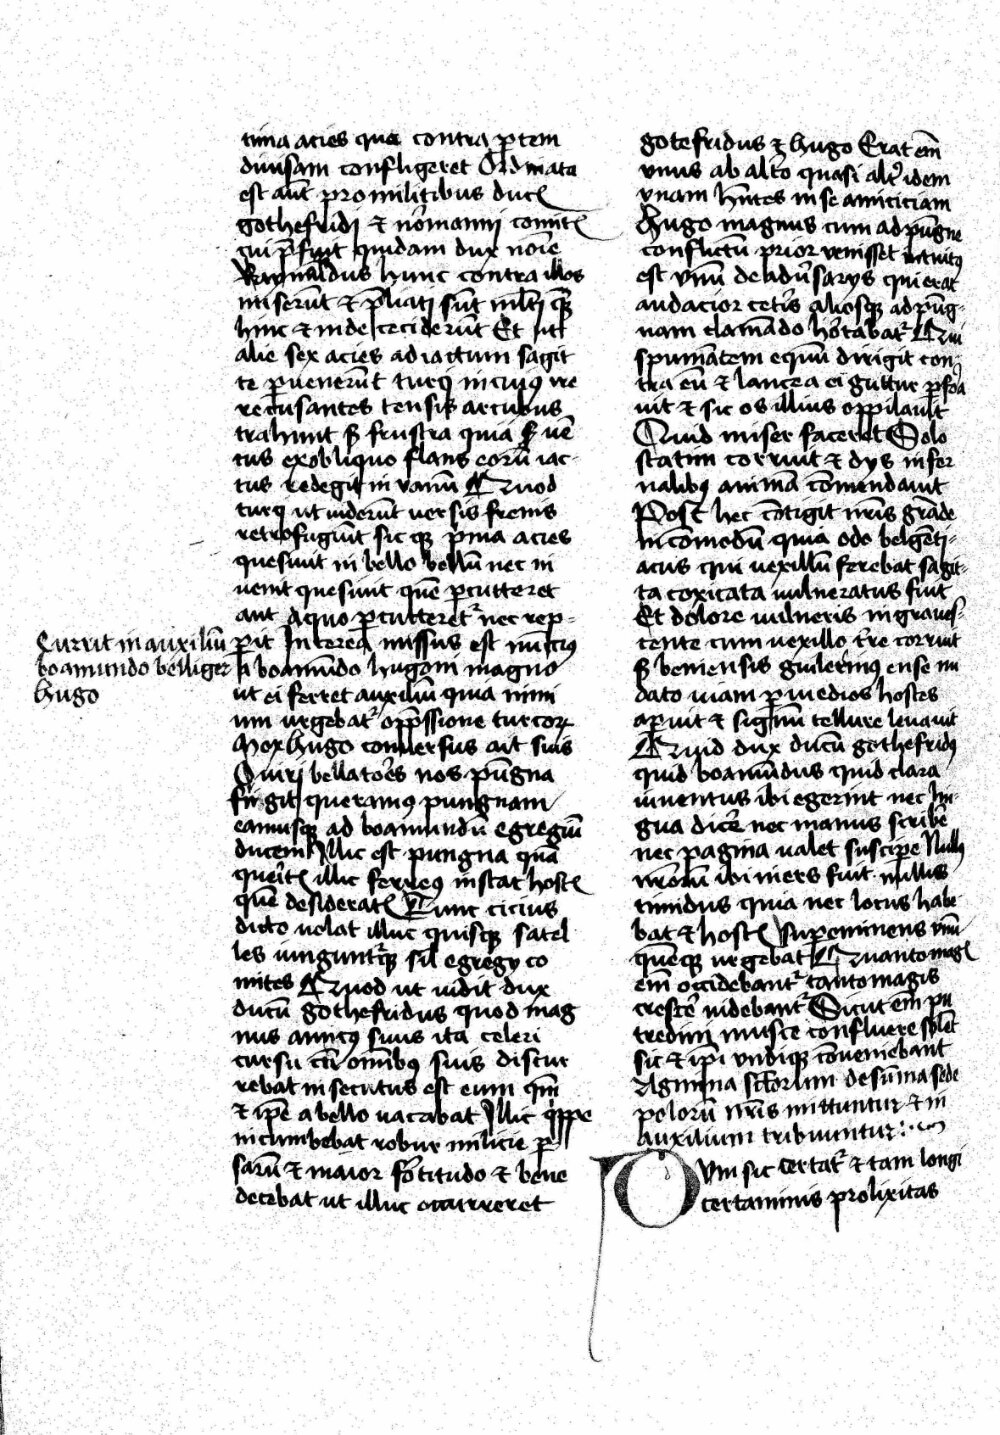 tima acies que contra ꝑtem
diuisam confligeret Ordinata
est aūt pro militibus ducꝭ
gothefridi et nōmanni comitꝭ
cui p̄fuit quidam dux noīe
Raynaldus hunc contra illos
miserūt et p̄liati sūt ml̄ti qꝫ
hinc et inde ceciderūt Et ut
alie sex acies ad iactum sagit
te ꝑuenerūt turci incuiꝰ ire
recusantes tensis arcubus
trahunt sꝫ frustra quia sꝫ uē
tus exobliquo flans eorū iac-
tus redegit in vanū Quod
turci ut uiderūt uersis frenis
retrofugiūt sic qꝫ p̄ma acies
quesiuit in bello bellū nec in
uenit quesiuit quē ꝑcutteret
aut a quo ꝑcutteretᷣ nec rep-
ꝑit Interea missus est nūciꝰ
a boamūdo hugoni magno
ut ei ferret auxiliū quia nimi
um urgebatᷣ opp̄ssione turcoꝝ
Mox hugo conuersus ait suis
Quiri bellatōes nos pūgna
fugit queramꝰ pungnam
eamusqꝫ ad boamundū egregiū
ducem Illic est pungna quā
queritꝭ illic ferreꝰ instat hostꝭ
quē desideratꝭ Tunc cicius
dicto uolat illuc quisqꝫ satel
les iunguntᷣqꝫ sil̄ egregij co
mites Quod ut uidit dux
ducū gothefridus quod mag
nus amicꝰ suus ita celeri
cursu cū omībꝰ suis discur
rebat insecutus est eum qm̄
et ipē a bello uacabat Illic qͥppe
incumbebat robur milicie ꝑ
sarū et maior fōtitudo et bene
decebat ut illuc occurreret
Currit in auxiliū
boamundo belliger
hugo
gotefridus et hugo Erat em̄
vnus ab altō quasi altᷣ idem
vnam hn̄tes in se amiciciam
Hugo magnus cum ad pūgne
conflictū prior venisset intuitꝰ
est vnū de adūsarijs qui erat
audacior cetīs aliosqꝫ ad pūg
nam clamādo hōtabatᷣ Qui
spumātem equū dirigit con-
tra eū et lancea ei guttur ꝑfoā
uit et sic os illius oppilauit
Quid miser faceret Solo
statim corruit et dijs infer
nalibꝰ animā cōmendauit
Post hec cōtigit nr̄is grāde
incomodū quia odo belgēti-
acus qui uexillū ferebat sagit-
ta toxicata uulneratus fuit
Et dolore uulneris ingraues-
cente cum uexillo tr̄e corruit
sꝫ beniensis guilermꝰ ense nu
dato uiam ꝑ medios hostes
aꝑuit et signū tellure leuauit
Quid dux ducū gothefridꝰ
quid boamūdus quid clara
iuuentus ibi egerint nec lin-
gua dicē nec manus scribē
nec pagina ualet suscipe Nullꝰ
nr̄orū ibi iners fuit nullus
timidus quia nec locus habe
bat et hostꝭ supeminens vnū
quēqꝫ urgebat Quanto magꝭ
em̄ occidebantᷣ tanto magis
crescē uidebantᷣ Sicut em̄ pu
tredini musce confluere solēt
sic et ipī vndiqꝫ cōueniebant
Agmina scōrum de sūma sede
polorū nr̄is mittuntur et in
auxilium tribuuntur
Dum sic certatᷣ et tam longi
certaminis prolixitas